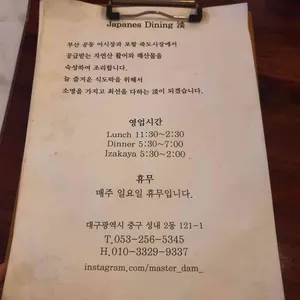 Japanes Dining 淡
부산 공동 어시장과 포항 죽도시장에서
공급받는 자연산 활어와 해산물을
숙성하여 조리합니다.
늘 즐거운 식도락을 위해서
소명을 가지고 최선을 다하는 淡이 되겠습니다.
영업시간
Lunch 11:30~2:30
Dinner 5:30~7:00
Izakaya 5:30~2:00
휴무
매주 일요일 휴무입니다.
대구광역시 중구 성내 2동 121-1
T.053-256-5345
H.010-3329-9337
instagram.com/master_dam_